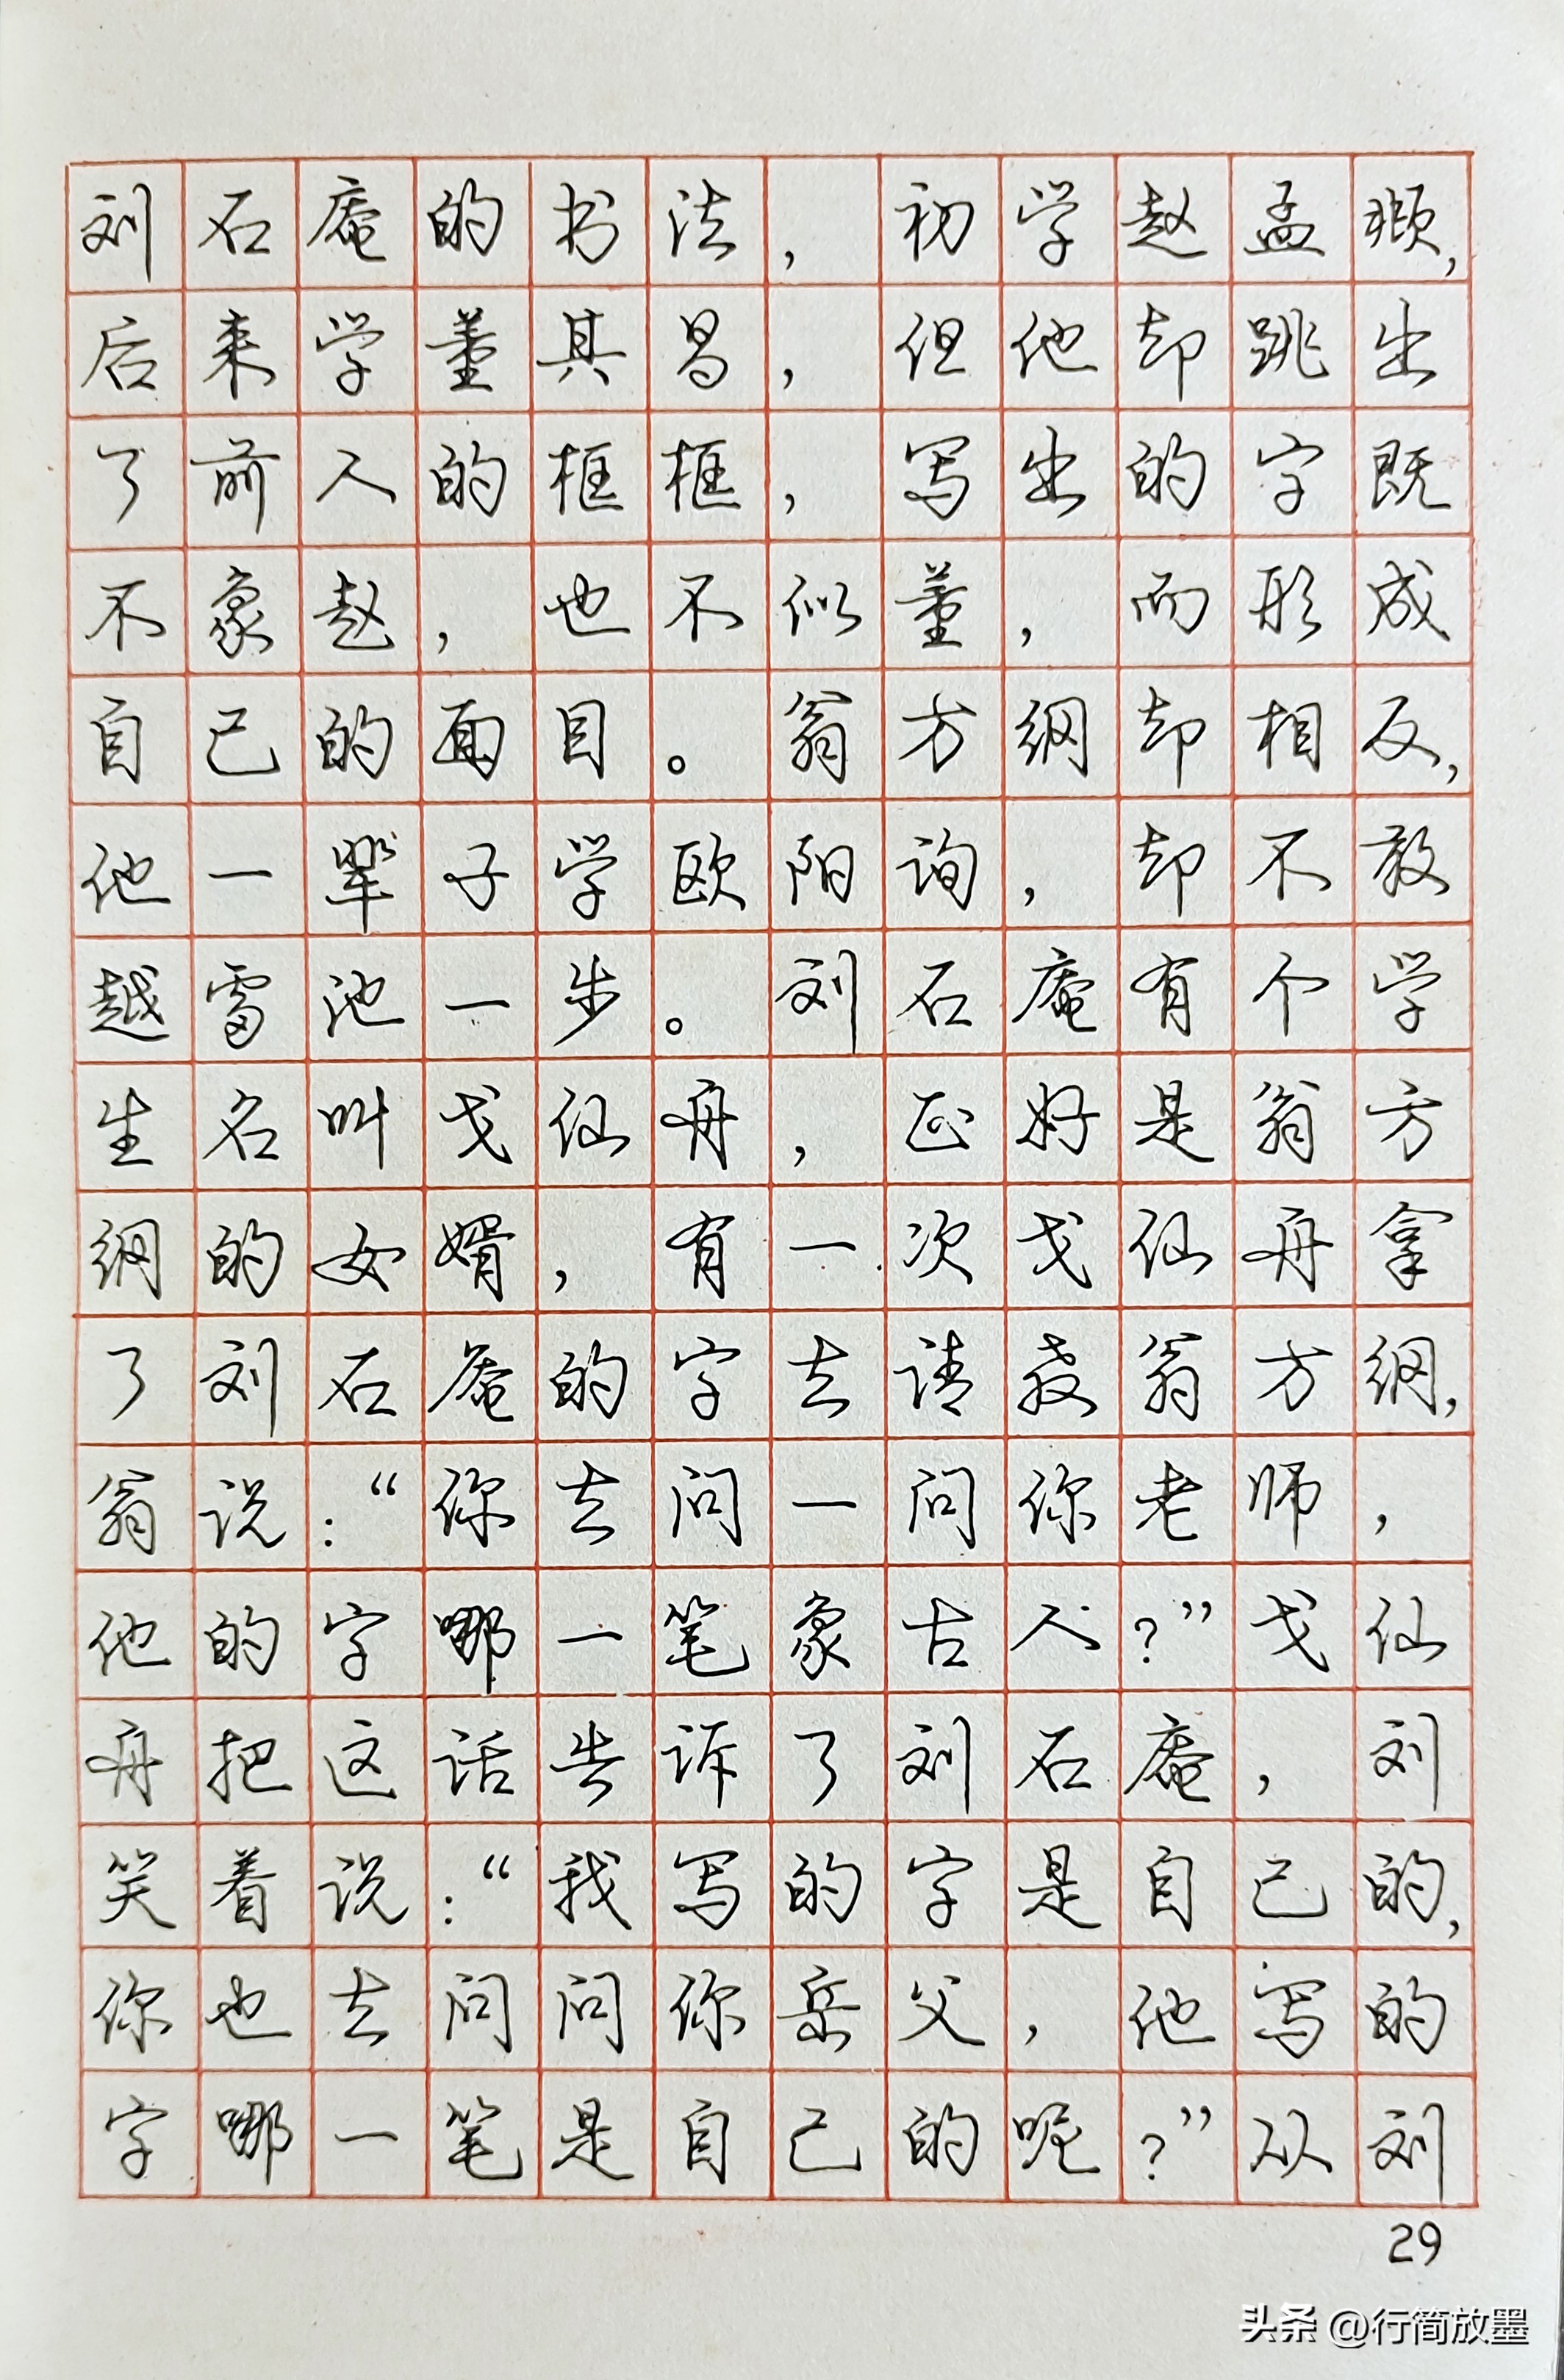 刘石庵的书法，初学赵孟頫，
后来学董其昌，但他却跳出
了前人的框框，写出的字既
不象赵，也不似董，而形成
自己的面目。翁方纲却相反，
他一辈子学欧阳询，却不敢
越雷池一步。刘石庵有个学
生名叫戈仙舟，正好是翁方
纲的女婿，有一次戈仙舟拿
了刘石庵的字去请教翁方纲，
翁说：“你去问一问你老师，
他的字哪一笔象古人？”戈仙
舟把这话告诉了刘石庵，刘
笑着说：“我写的字是自己的，
你也去问问你岳父，他写的
字哪一笔是自己的呢？”从刘
29
头条 @行简放墨